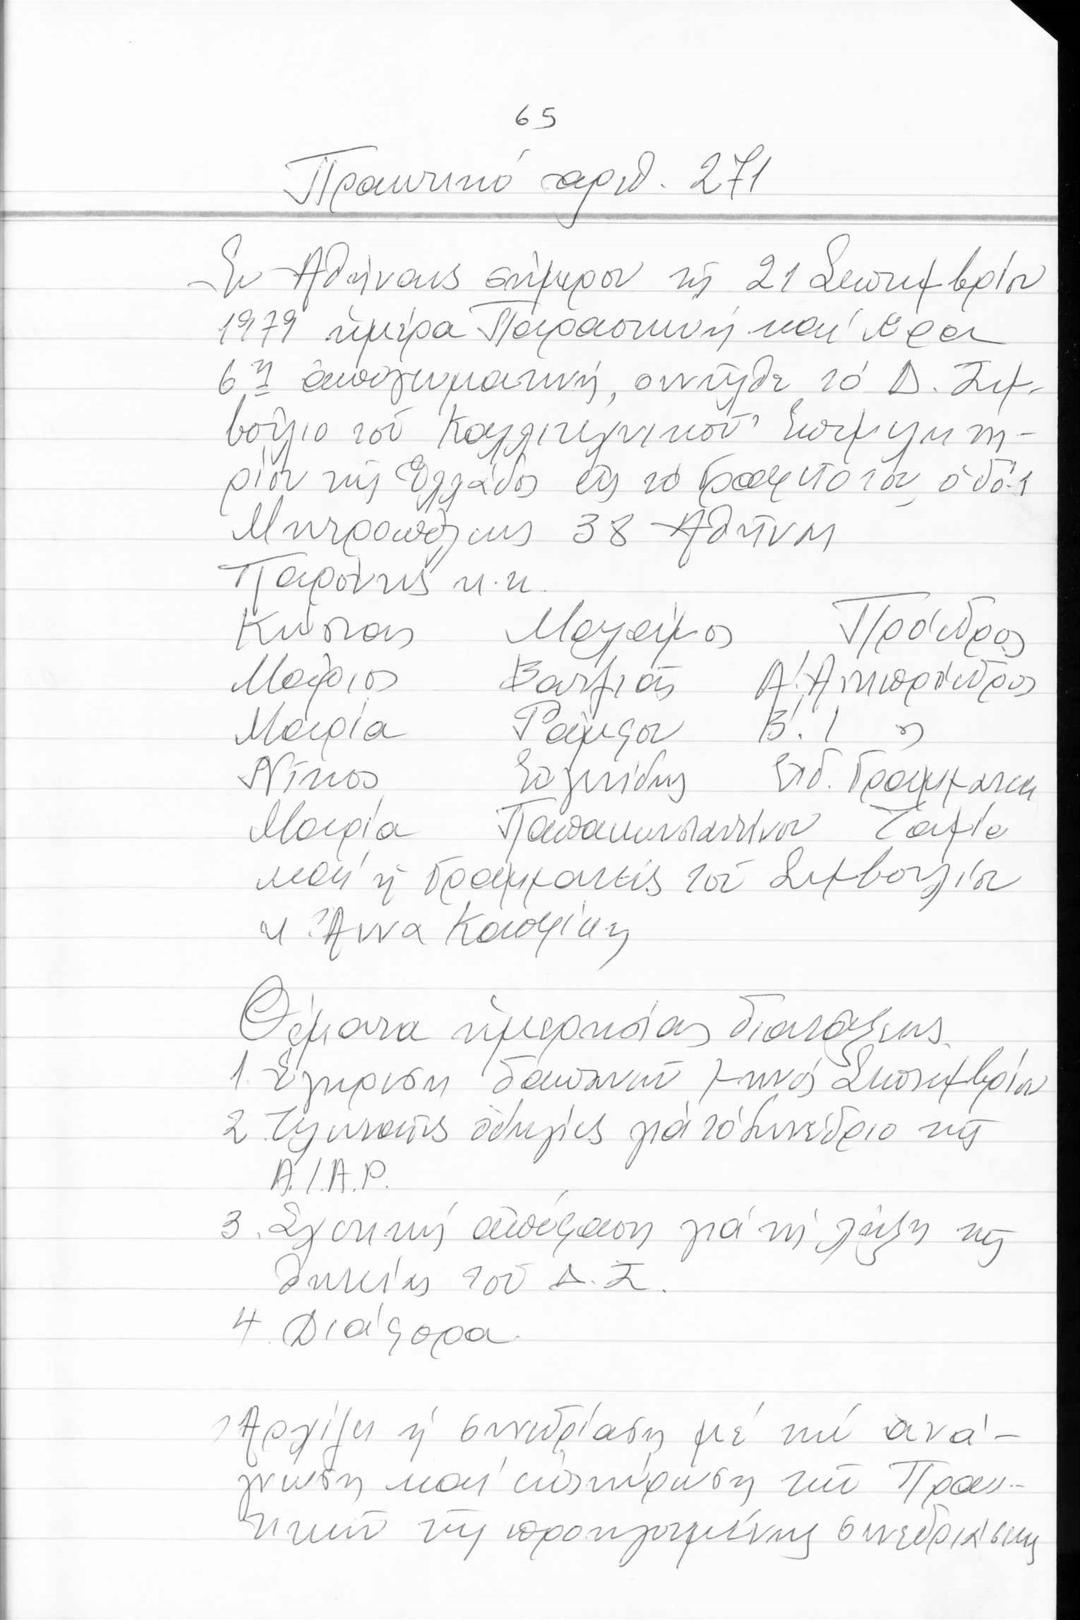 65
Πρακτικό αριθ. 271
Ἐν Ἀθήναις σήμερον τῇ 21 Σεπτεμβρίου
1979 ἡμέρα Παρασκευή καί ὥρα
6η ἀπογευματινή, συνῆλθε τό Δ. Συμ-
βούλιο τοῦ Καλλιτεχνικοῦ Ἐπιμελητη-
ρίου τῆς Ἑλλάδος εἰς τό Γραφεῖο του, ὁδός
Μητροπόλεως 38 Ἀθῆναι
Παρόντες κ.κ.
Κώστας Μαλάμος Πρόεδρος
Μάριος Βατζιᾶς Α! Ἀντιπρόεδρος
Μαρία Β! "
Νίκος Εἰδ. Γραμματεύς
Μαρία Παπακωνσταντίνου Ταμίας
καί ἡ Γραμματεύς τοῦ Συμβουλίου
κ. Ἄννα Καψίκη
Θέματα ἡμερησίας διατάξεως
1. Ἔγκριση δαπανῶν μηνός Σεπτεμβρίου
2. ὁδηγίες γιά τό Συνέδριο τῆς
A.I.A.P.
3. Σχετική ἀπόφαση γιά τή λήξη τῆς
θητείας τοῦ Δ.Σ.
4. Διάφορα.
Ἀρχίζει ἡ συνεδρίαση μέ τήν ἀνά-
γνωση καί ἐπικύρωση τῶν Πρακ-
τικῶν τῆς προηγουμένης συνεδριάσεως